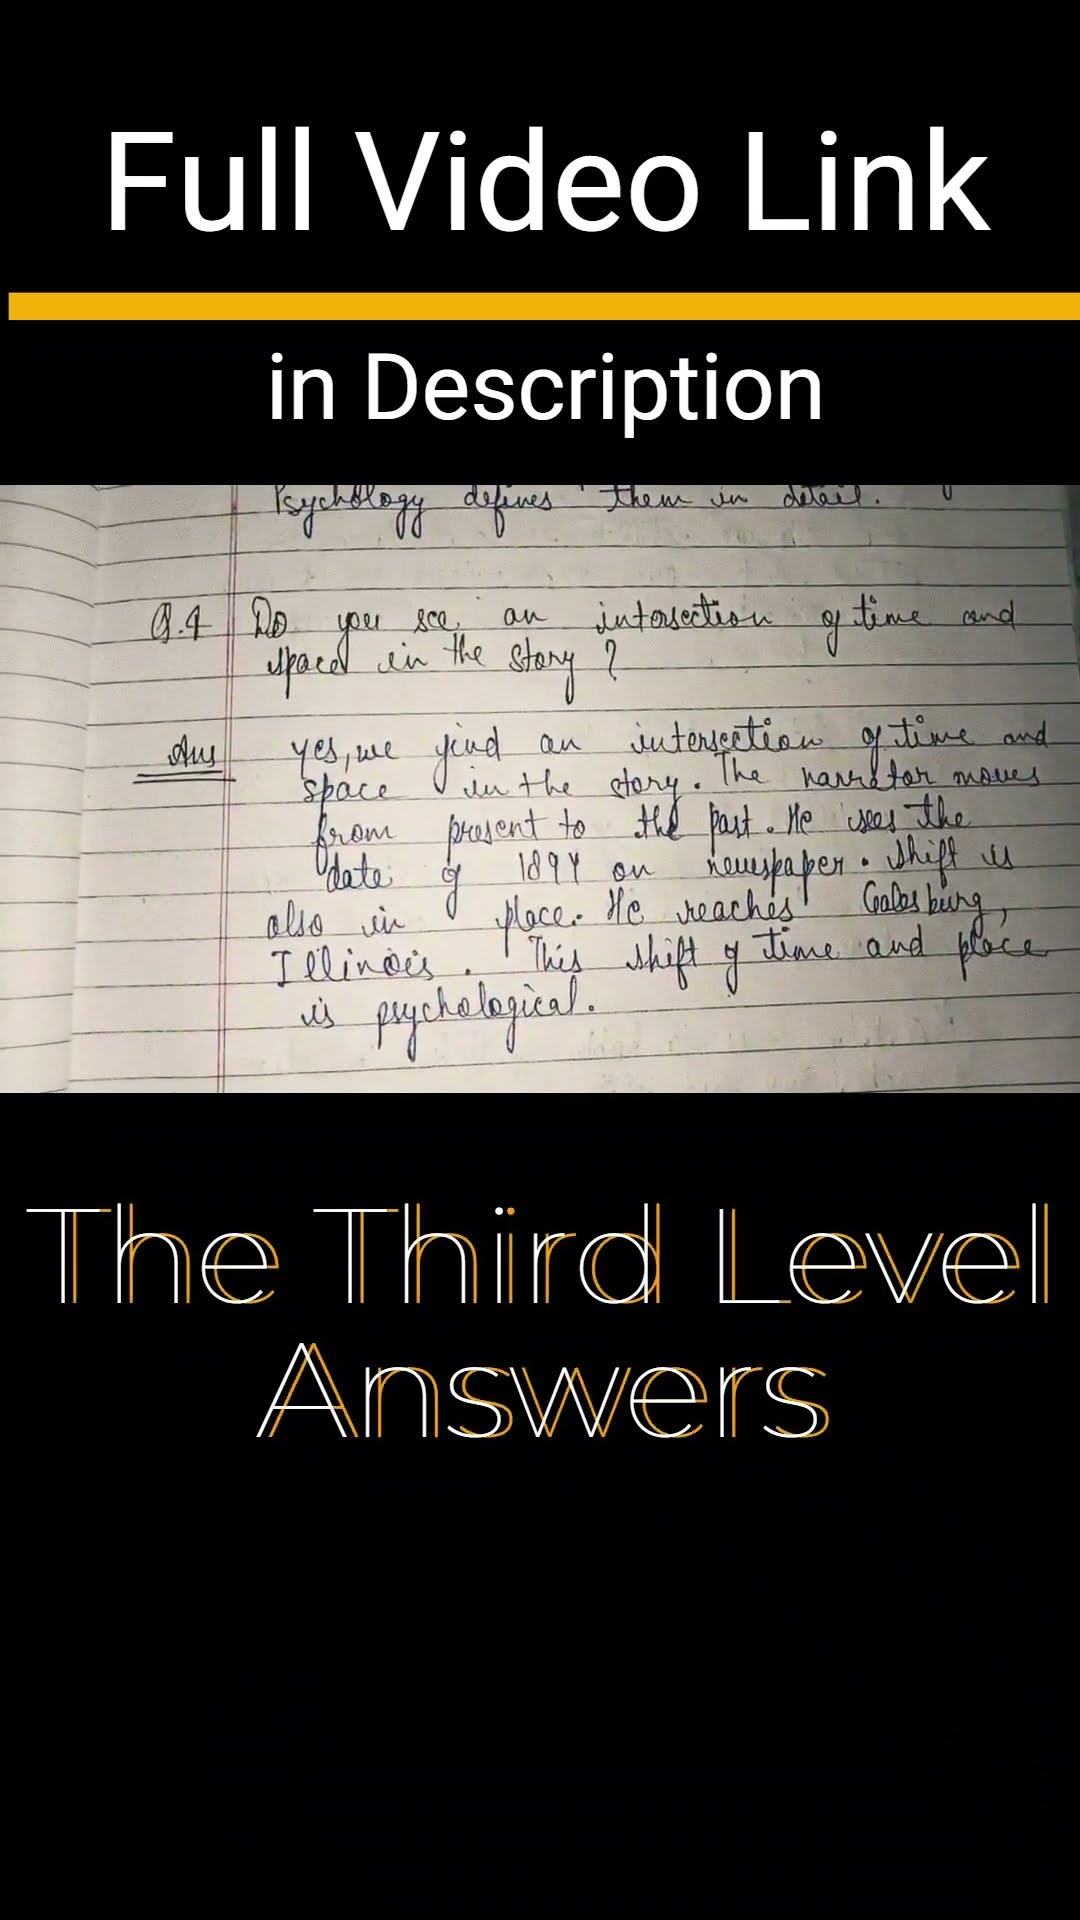 Full Video Link
in Description
Psychology defines them in detail.
Q.4 Do you see an intersection of time and
space in the story ?
Ans yes, we find an intersection of time and
space in the story. The narrator moves
from present to the past. He sees the
date of 1894 on newspaper. Shift is
also in place. He reaches Galesburg,
Illinois. This shift of time and place
is psychological.
The Third Level
Answers